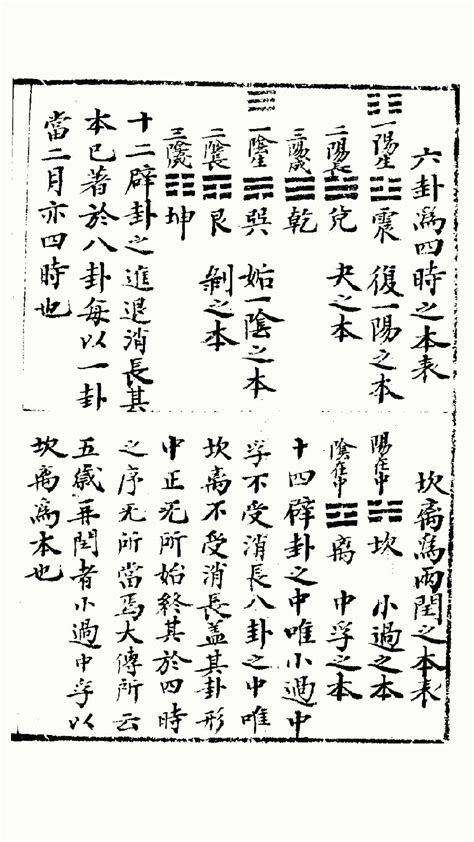 六卦爲四時之本表
一陽生 ☳ 震 復一陽之本
二陽長 ☱ 兌 夬之本
三陽成 ☰ 乾
一陰生 ☴ 巽 姤一陰之本
二陰長 ☶ 艮 剝之本
三陰成 ☷ 坤
十二辟卦之進退消長其
本已著於八卦每以一卦
當二月亦四時也
坎离爲兩閏之本表
陽在中 ☵ 坎 小過之本
陰在中 ☲ 离 中孚之本
十四辟卦之中唯小過中
孚不受消長八卦之中唯
坎离不受消長盖其卦形
中正无所始終其於四時
之序无所當焉大傳所云
五歲再閏者小過中孚以
坎离爲本也